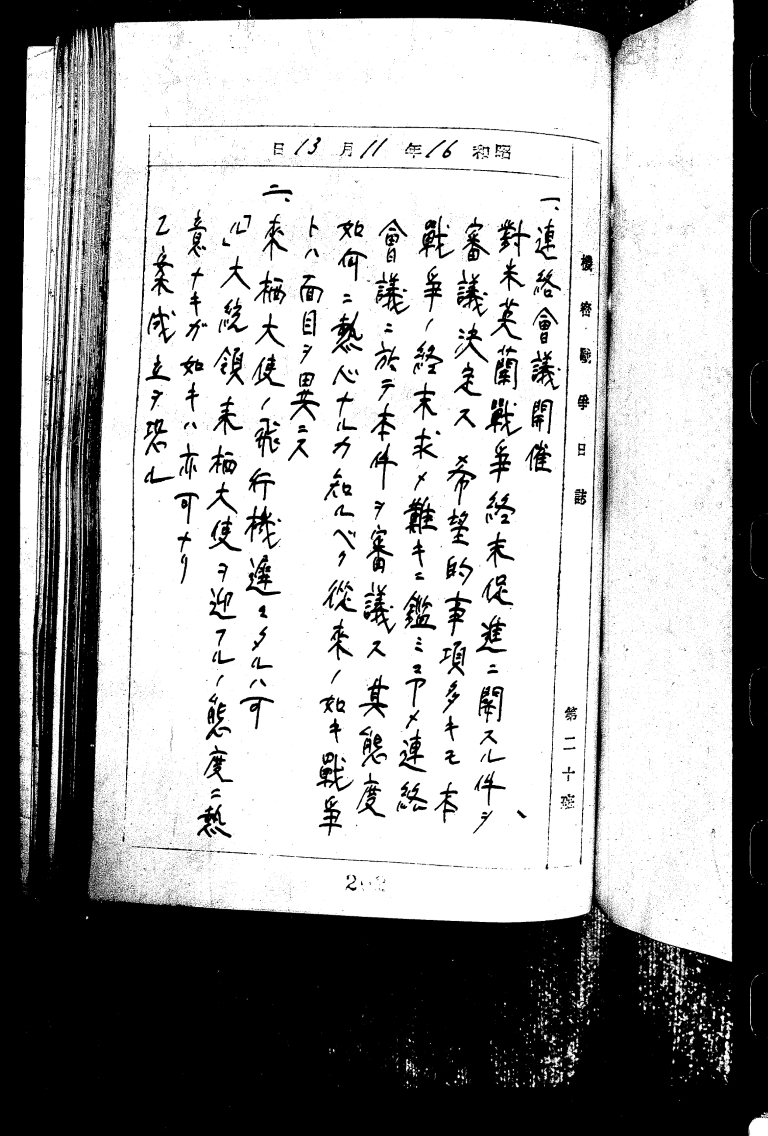 機密戰爭日誌
第二十班
昭和16年11月13日
一、連絡會議開催
對米英蘭戰爭終末促進ニ關スル件ヲ、
審議決定ス 希望的事項多キモ本
戰爭ノ終末求メ難キニ鑑ミ
連絡
會議ニ於テ本件ヲ審議ス 其態度
如何ニ熱心ナルカ知ルベク從來ノ如キ戰爭
トハ面目ヲ異ニス
二、來栖大使ノ飛行機遲レタルハ可
「ル」大統領来栖大使ヲ迎フルノ態度ニ熱
意ナキガ如キハ亦可ナリ
乙案成立ヲ恐ル